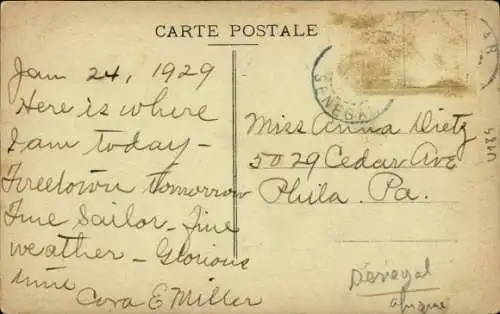 CARTE POSTALE
Jan 24, 1929
Here is where
I am today -
Freetown tomorrow
Fine Sailor - fine
weather - Glorious
time
Cora E Miller
SENEGAL
Miss Anna Dietz
5029 Cedar Ave
Phila. Pa.
Senegal
Afrique